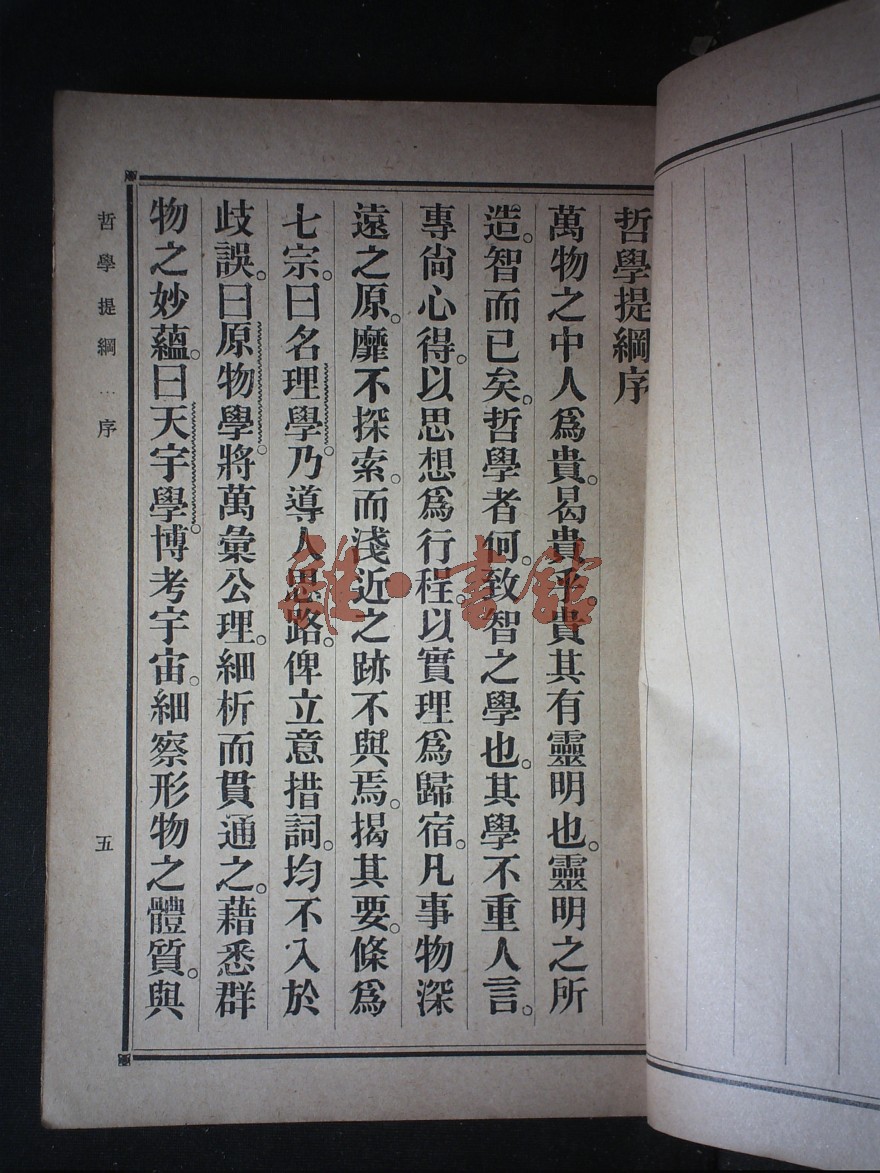 哲學提綱序
萬物之中人爲貴。曷貴乎。貴其有靈明也。靈明之所
造。智而已矣。哲學者何。致智之學也。其學不重人言。
專尙心得。以思想爲行程。以實理爲歸宿。凡事物深
遠之原。靡不探索。而淺近之跡不與焉。揭其要。條爲
七宗。曰名理學。乃導人思路。俾立意措詞。均不入於
歧誤。曰原物學。將萬彙公理。細析而貫通之。藉悉群
物之妙蘊。曰天宇學。博考宇宙。細察形物之體質。與
哲學提綱 序
五
雜·書館